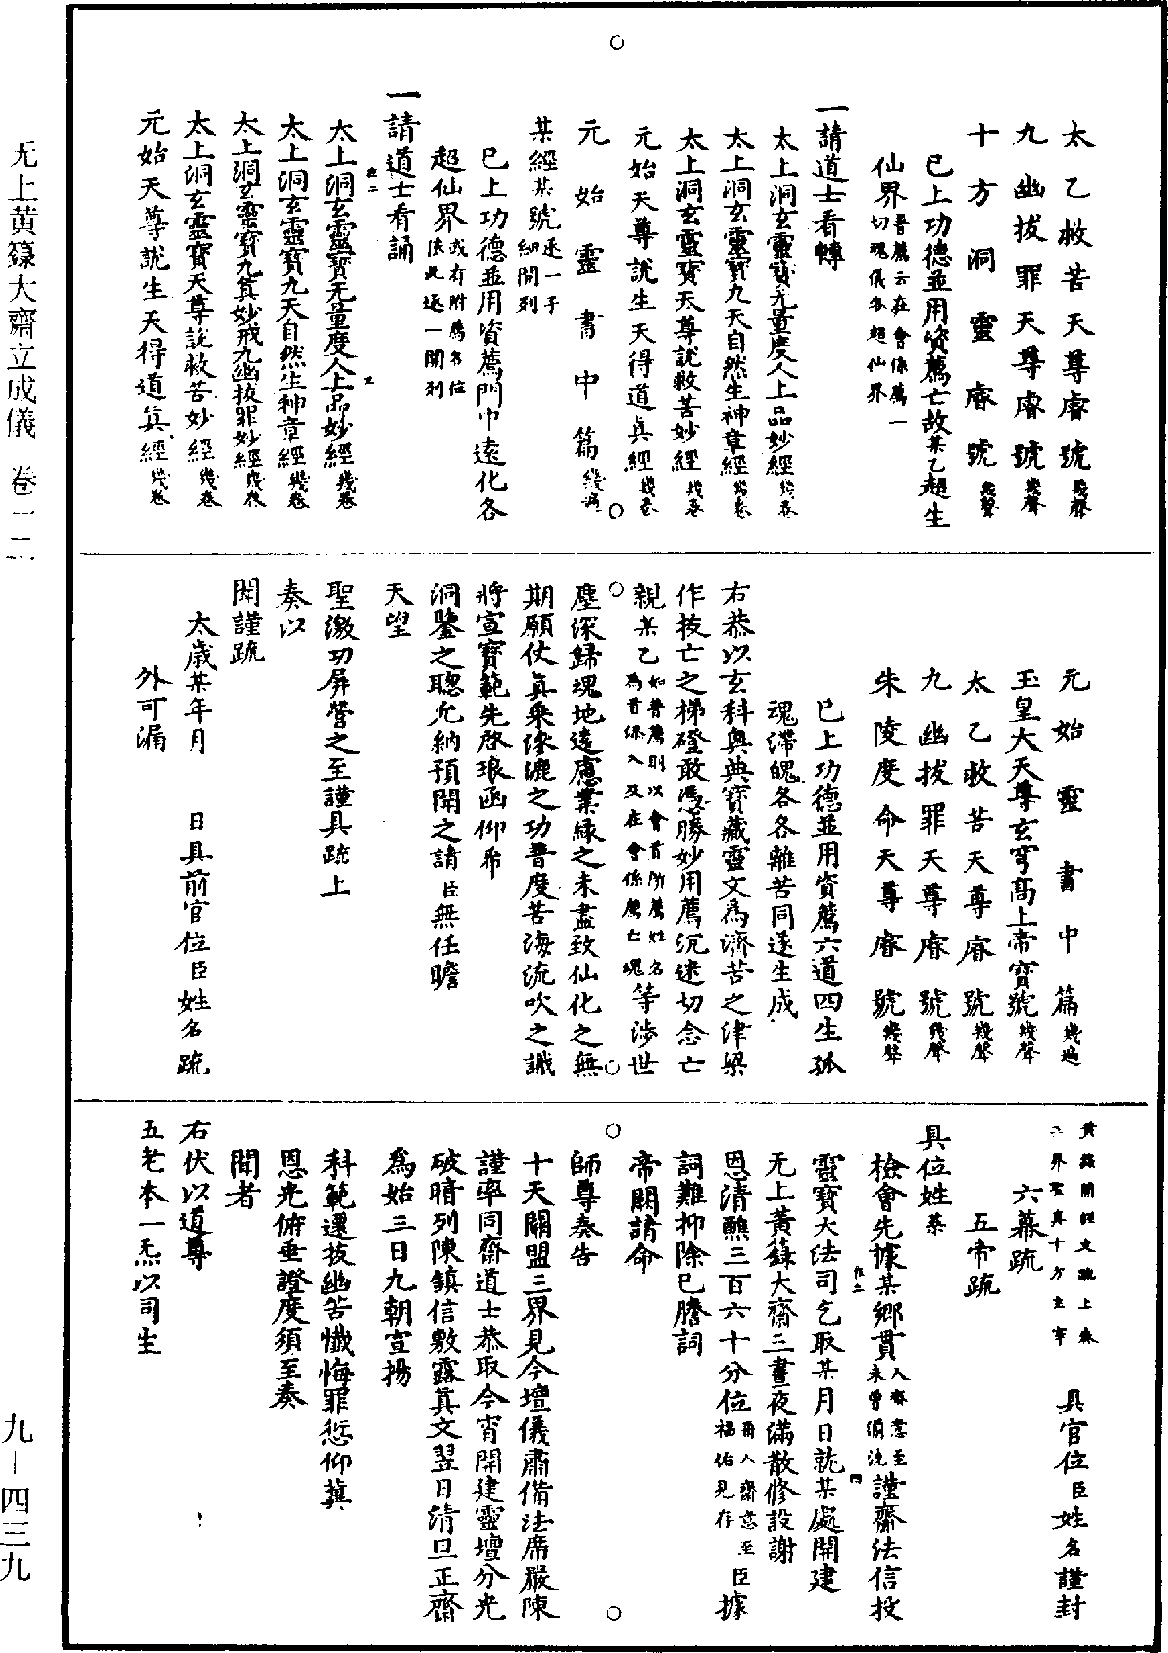 太乙救苦天尊睿號幾聲
九幽拔罪天尊睿號幾聲
十方洞靈睿號幾聲
已上功德並用資薦亡故某乙超生
仙界普薦云在會係薦一切魂儀各超仙界
一請道士看轉
太上洞玄靈寶无量度人上品妙經幾卷
太上洞玄靈寶九天自然生神章經幾卷
太上洞玄靈寶天尊說救苦妙經幾卷
元始天尊說生天得道真經幾卷
元始靈書中篇幾遍
某經某號逐一子細開列
已上功德並用資薦門中遠化各
超仙界或有附薦名位依此逐一開列
一請道士看誦
太上洞玄靈寶无量度人上品妙經幾卷
太上洞玄靈寶九天自然生神章經幾卷
太上洞玄靈寶九真妙戒九幽拔罪妙經幾卷
太上洞玄靈寶天尊說救苦妙經幾卷
元始天尊說生天得道真經幾卷
元始靈書中篇幾遍
玉皇大天尊玄穹高上帝寶號幾聲
太乙救苦天尊睿號幾聲
九幽拔罪天尊睿號幾聲
朱陵度命天尊睿號幾聲
已上功德並用資薦六道四生孤
魂滯魄各各離苦同遂生成
右恭以玄科奧典寶藏靈文為濟苦之津梁
作拔亡之梯磴敢憑勝妙用薦沉迷切念亡
親某乙如普薦則以會首所薦姓名為首係入及在會係薦亡魂等涉世
塵深歸塊地遠慮業緣之未盡致仙化之無
期願仗真乘滌灑之功普度苦海流吹之識
將宣寶範先啓琅函仰希
洞鑒之聰允納預開之請臣無任瞻
天望
聖激功屏營之至謹具疏上
奏以
聞謹疏
太歲某年月 日具前官位臣姓名疏
外可漏
黃籙開經文疏上奏三界聖真十方主宰 具官位臣姓名謹封
六幕疏
五帝疏
具位姓某
檢會先據某鄉貫入齋意至未曾須洗謹齋法信投
靈寶大法司乞取某月日就某處開建
无上黃籙大齋三晝夜滿散修設謝
恩清醮三百六十分位爾入齋意至福佑見存臣據
詞難抑除已謄詞
帝闕請命
師尊奏告
十天關盟三界見今壇儀肅備法席嚴陳
謹率同齋道士恭取今宵開建靈壇分光
破暗列陳鎮信敷露真文翌日清旦正齋
為始三日九朝宣揚
科範遷拔幽苦懺悔罪愆仰冀
恩光俯垂證度須至奏
聞者
右伏以道尊
五老本一炁以司生
无上黃籙大齋立成儀 卷一二
九—四三九